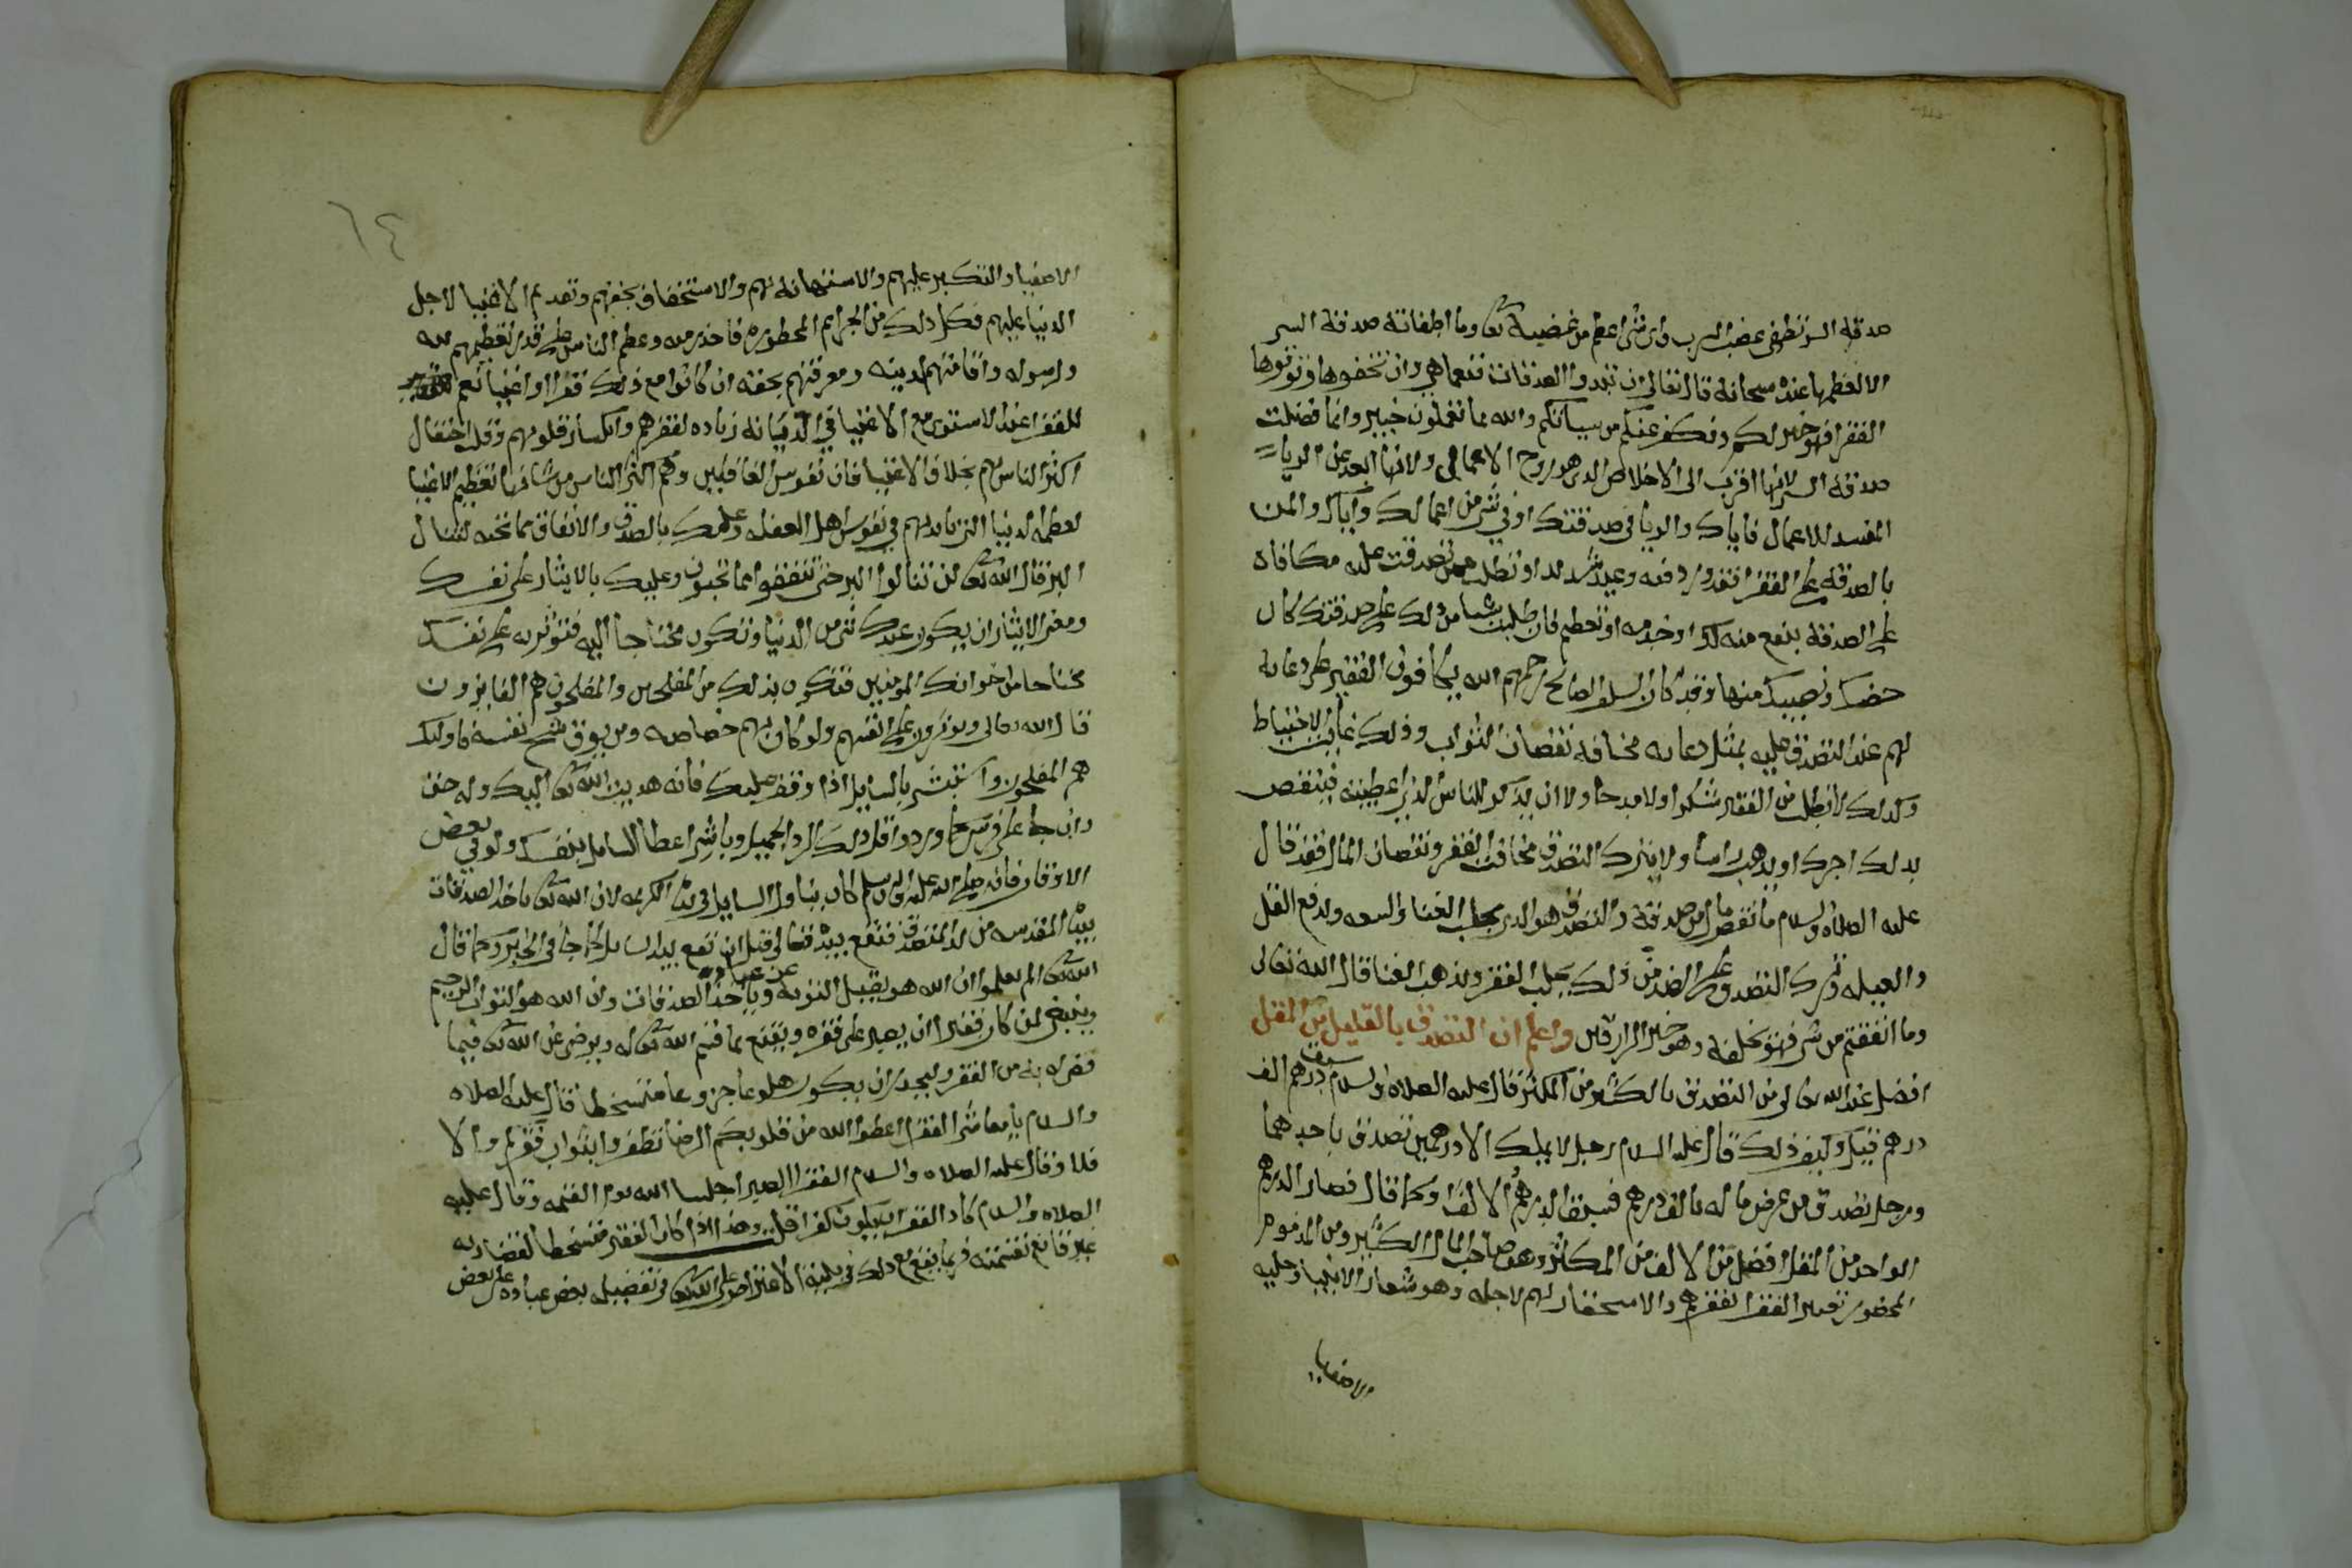 صدقة السر تطفي غضب الرب واي شي اعظم من غضبه تعا وما اطفاته صدقة السر
الا لعظمها عنده سبحانه قال تعالى ان تبدوا الصدقات فنعما هي وان تخفوها وتوتوها
الفقرا فهو خير لكم ونكفر عنكم من سياتكم والله بما تعملون خبير وانما فضلت
صدقة السر لانها اقرب الى الاخلاص الذي هو روح الاعمال ولانها ابعد عن الريا
المفسد للاعمال فاياك والريا في صدقتك او في شي من اعمالك واياك والمن
بالصدقه على الفقرا فقد ورد فيه وعيد شديد او تطلب ممن تصدقت عليه مكافاة
على الصدقة بنفع منه لك او خدمه او تعظيم فان طلبت شيا من ذلك على صدقتك كان
حضك ونصيبك منها وقد كان السلف الصالح رحمهم الله يكافون الفقير على دعايه
لهم عند التصدق عليه بمثل دعايه مخافة نقصان الثواب وذلك غاية الاحتياط
وكذلك لا تطلب من الفقير شكرا ولا مدحا ولا ان يذكر للناس الذي اعطيته فينقص
بذلك اجرك او يذهب راسا ولا تترك التصدق مخافة الفقر ونقصان المال فقد قال
عليه الصلاه والسلام ما نقص مال من صدقة والتصدق هو الذي يجلب الغنا والسعه ويدفع القل
والعيله وترك التصدق على الضد من ذلك يجلب الفقر ويذهب الغنا قال الله تعالى
وما انفقتم من شي فهو يخلفه وهو خير الرازقين واعلم ان التصدق بالقليل من المقل
افضل عند الله تعالى من التصدق بالكثير من المكثر قال عليه الصلاه والسلام سبق درهم الف
درهم قيل وكيف ذلك قال عليه السلام رجل لا يملك الا درهمين تصدق باحدهما
ورجل تصدق من عرض ماله بالف درهم فسبق الدرهم الالف او كما قال فصار الدرهم
الواحد من المقل افضل من الالف من المكثر وهو صاحب المال الكثير ومن المذموم
المحضور تعيير الفقرا لفقرهم والاستحقار لهم لاجله وهو شعار الانبيا وحليه
الاصفيا
٦٤
الاصفيا والتكبر عليهم والاستهانه بهم والاستخفاف بحقهم وتقديم الاغنيا لاجل
الدنيا عليهم فكل ذلك من الجرايم المحظوره فاحذر منه وعظم الناس على قدر تعظيمهم لله
ولرسوله واقامتهم لدينه ومعرفتهم بحقه ان كانوا مع ذلك فقرا او اغنيا نعم
للفقرا عند الاستوى مع الاغنيا في الديانه زياده لفقرهم وانكسار قلوبهم وقلة احتفال
اكثر الناس بهم بخلاف الاغنيا فان نفوس الغافلين وهم اكثر الناس من شانها تعظيم الاغنيا
لعظمة الدنيا التي بايديهم في نفوس اهل الغفله وعليك بالصدقه والانفاق مما تحبه لتنال
البر قال الله تعا لن تنالوا البر حتى تنفقوا مما تحبون وعليك بالايثار على نفسك
ومعنى الايثار ان يكون عندك شي من الدنيا وتكون محتاجا اليه فتوثر به على نفسك
محتاجا من اخوانك المومنين فتكون بذلك من المفلحين والمفلحون هم الفايزون
قال الله تعالى ويوثرون على انفسهم ولو كان بهم خصاصه ومن يوق شح نفسه فاوليك
هم المفلحون واستبشر بالسايل اذا وقف عليك فانه هدية الله تعا اليك وله حق
وان جا على فرس كما ورد واقل ذلك الرد الجميل وباشر اعطا السايل بنفسك ولو في بعض
الاوقات فانه صلى الله عليه وسلم كان يناول السايل في يده الكريمه لان الله تعا ياخذ الصدقات
بيده المقدسه من يد المتصدق فتقع بيده تعالى قبل ان تقع بيد السايل كما جا في الخبر وكما قال
الله تعا الم يعلموا ان الله هو يقبل التوبه عن عباده وياخذ الصدقات وان الله هو التواب الرحيم
وينبغي لمن كان فقيرا ان يصبر على فقره ويقنع بما قسم الله تعا له ويرضى عن الله تعا فيما
قضاه به من الفقر وليحذر ان يكون هلوعا جزوعا متسخطا قال عليه الصلاه
والسلام يا معاشر الفقرا اعطوا الله من قلوبكم الرضا تظفروا بثواب فقركم والا
فلا وقال عليه الصلاه والسلام الفقرا الصبر اجلسا الله يوم القيمه وقال عليه
الصلاه والسلام كاد الفقر ان يكون كفرا وهذا اذا كان الفقير متسخطا لقضا ربه
غير قانع بقسمته وربما يقع مع ذلك في بلية الاعتراض على الله تعا في تفضيله بعض عباده على بعض